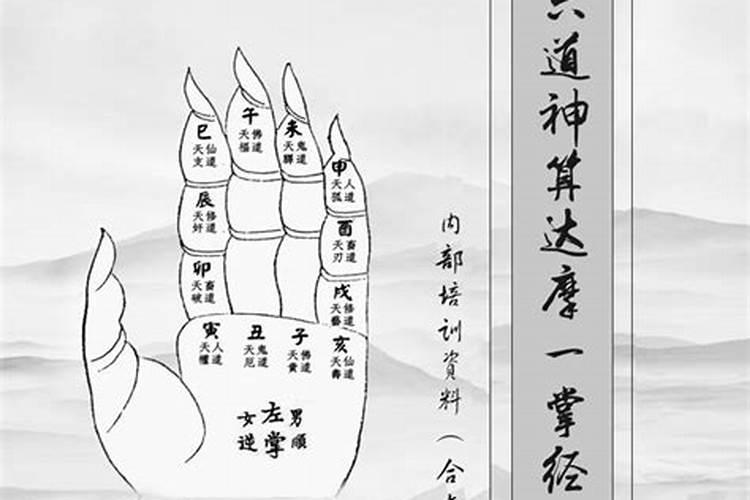 六道神算达摩一掌经
内部培训資料(合
巳
天支 仙道
午
天福 佛道
未
天驛 鬼道
申
天孤 人道
辰
天奸 修道
酉
天刃 畜道
卯
天破 畜道
戌
天藝 修道
寅
天權 人道
丑
天厄 鬼道
子
天貴 佛道
亥
天壽 仙道
女逆 左掌 男順